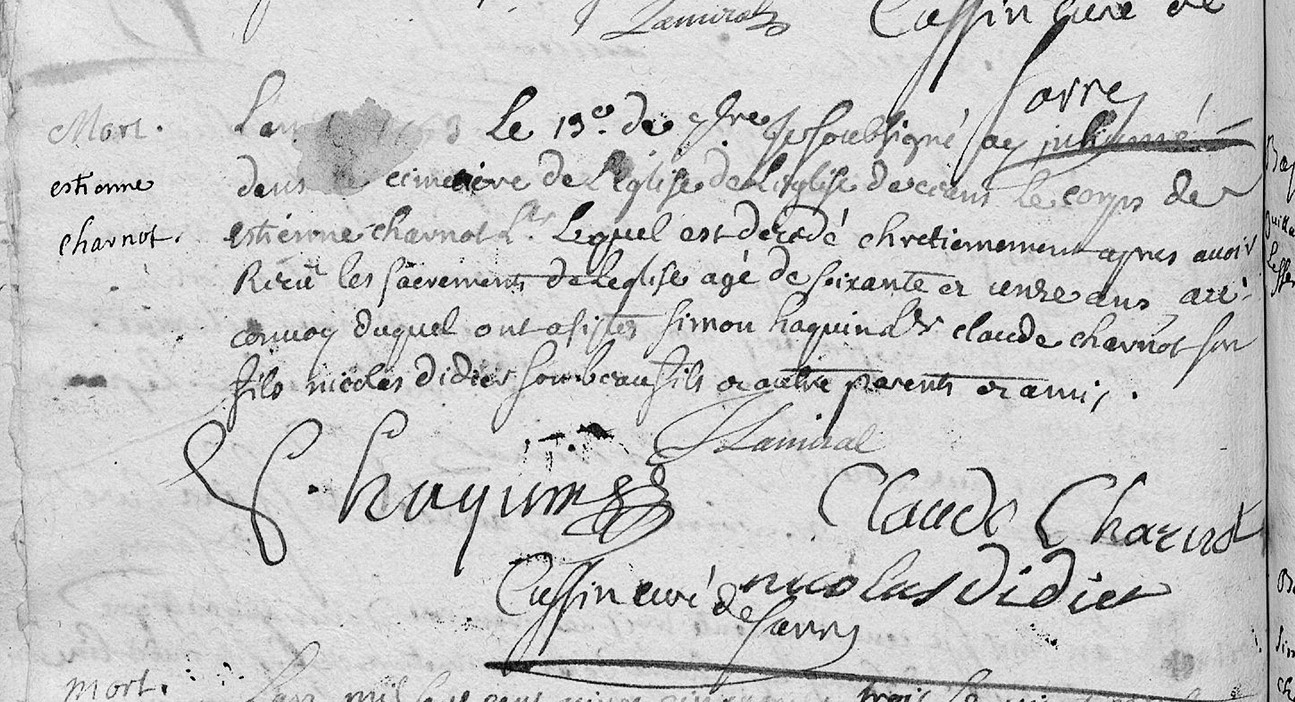 Lamiral Cassin curé de
Sarry
Mort.
estienne
charnot.
L'an 3 le 13e. de 7bre je soubsigné ay inhumé
dans le cimetiere de L'Eglise de L'eglise de ceans le corps de
estienne charnot Lr. Lequel est decedé chretiennement apres avoir
Receu les sacrements de Leglise agé de soixante et onze ans au
convoy duquel ont asistes simon haquin Lr claude charnot son
fils nicolas didier son beau fils et autre parents et amis.
Lamiral
S. haquin
Claude Charnot
nicolas didier
Cassin curé de
Sarry
mort.